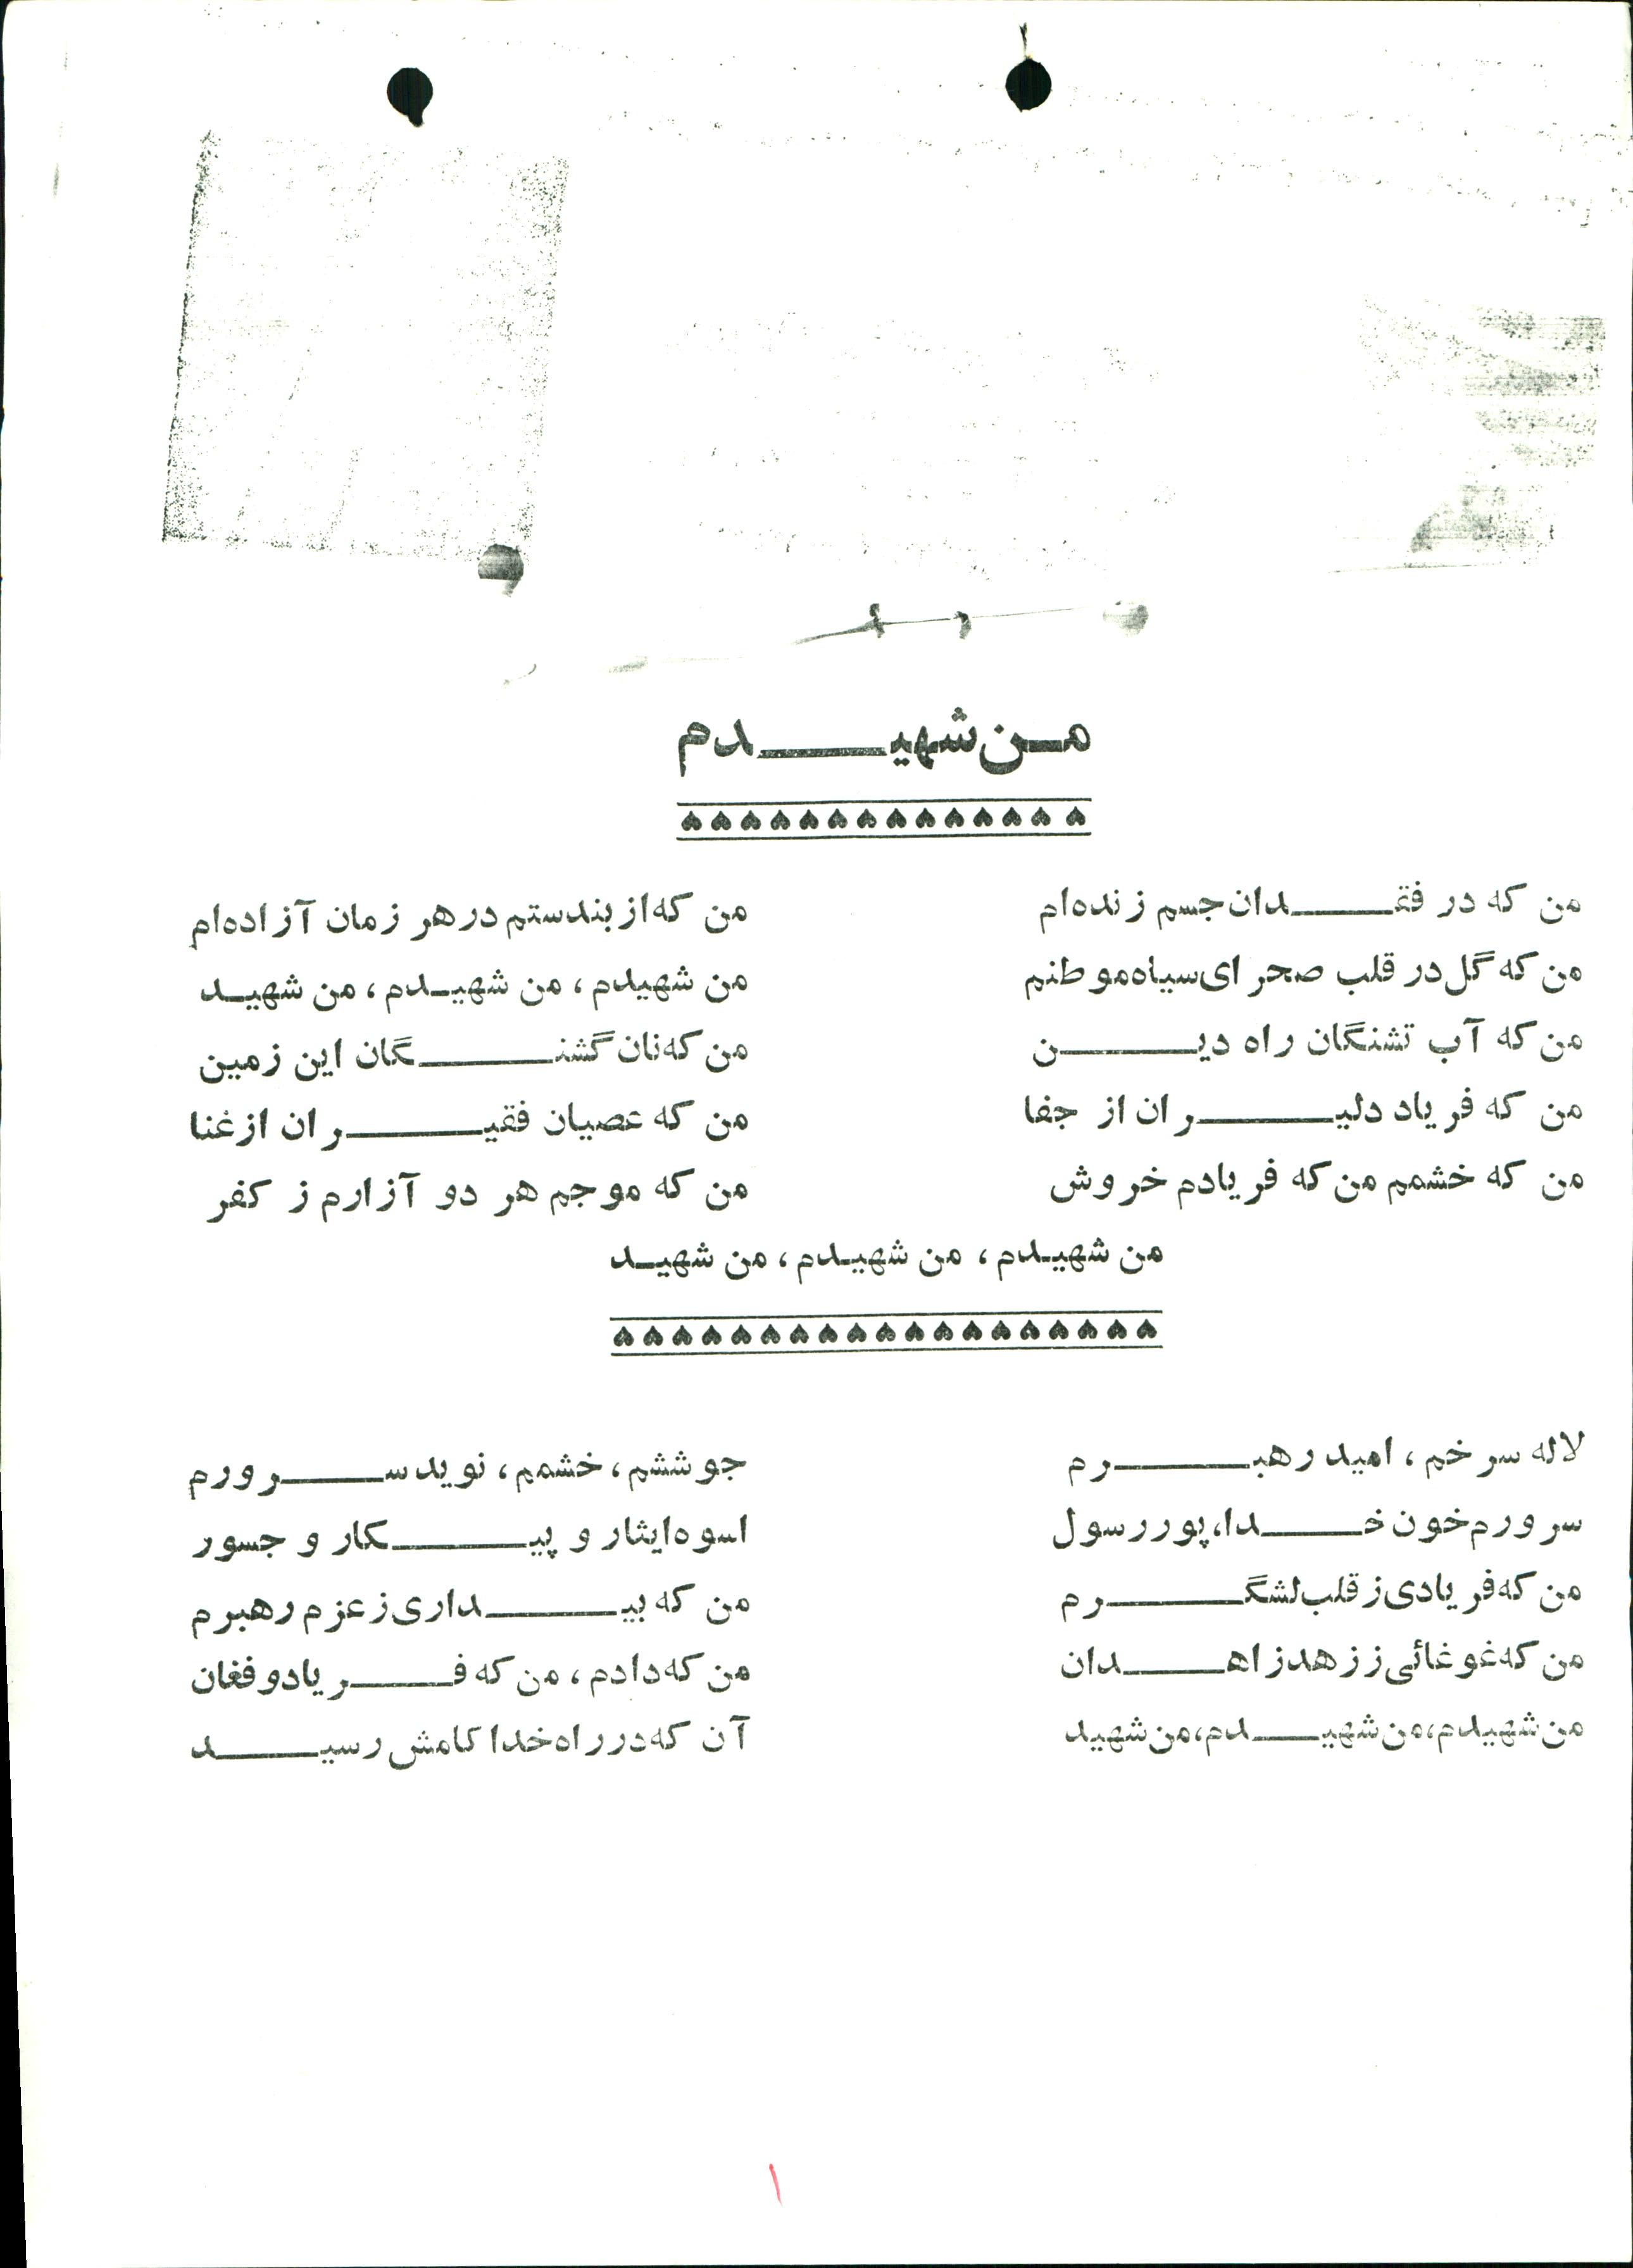 من شهیدم
من که در فقدان جسم زنده‌ام من که از بندستم در هر زمان آزاده‌ام
من که گل در قلب صحرای سیاه موطنم من شهیدم، من شهیدم، من شهید
من که آب تشنگان راه دین من که نان گشنگان این زمین
من که فریاد دلیران از جفا من که عصیان فقیران از غنا
من که خشمم من که فریادم خروش من که موجم هر دو آزارم ز کفر
من شهیدم، من شهیدم، من شهید
لاله سرخم، امید رهبرم جوششم، خشمم، نوید سرورم
سرورم خون خدا، پور رسول اسوه ایثار و پیکار و جسور
من که فریادی ز قلب لشگرم من که بیداری ز عزم رهبرم
من که غوغائی ز زهد زاهدان من که دادم، من که فریاد و فغان
من شهیدم، من شهیدم، من شهید آن که در راه خدا کامش رسید
۱